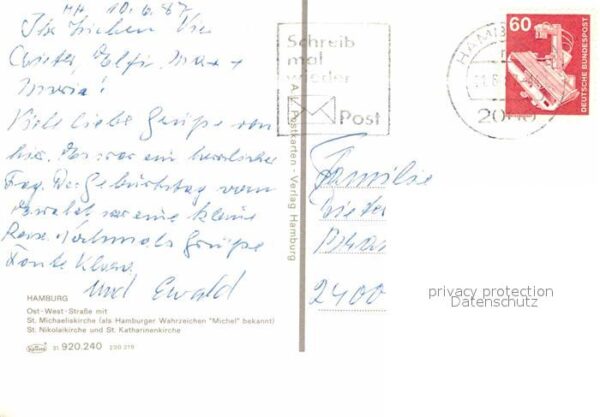 HH 10.6.87
Ihr lieben Vier
Dieter, Elfi, Marc +
Maria!
Viele liebe Grüße von
hier. Es war ein herrlicher
Tag. Der Geburtstag vom
Ewald war eine kleine
Reise. Nochmals Grüße
Tante
und Ewald
HAMBURG
Ost-West-Straße mit
St. Michaeliskirche (als Hamburger Wahrzeichen "Michel" bekannt)
St. Nikolaikirche und St. Katharinenkirche
920.240 290 219
Postkarten-Verlag Hamburg
Schreib
mal
wieder
Post
HAMB
60
DEUTSCHE BUNDESPOST
Familie
Dieter
2400
privacy protection
Datenschutz